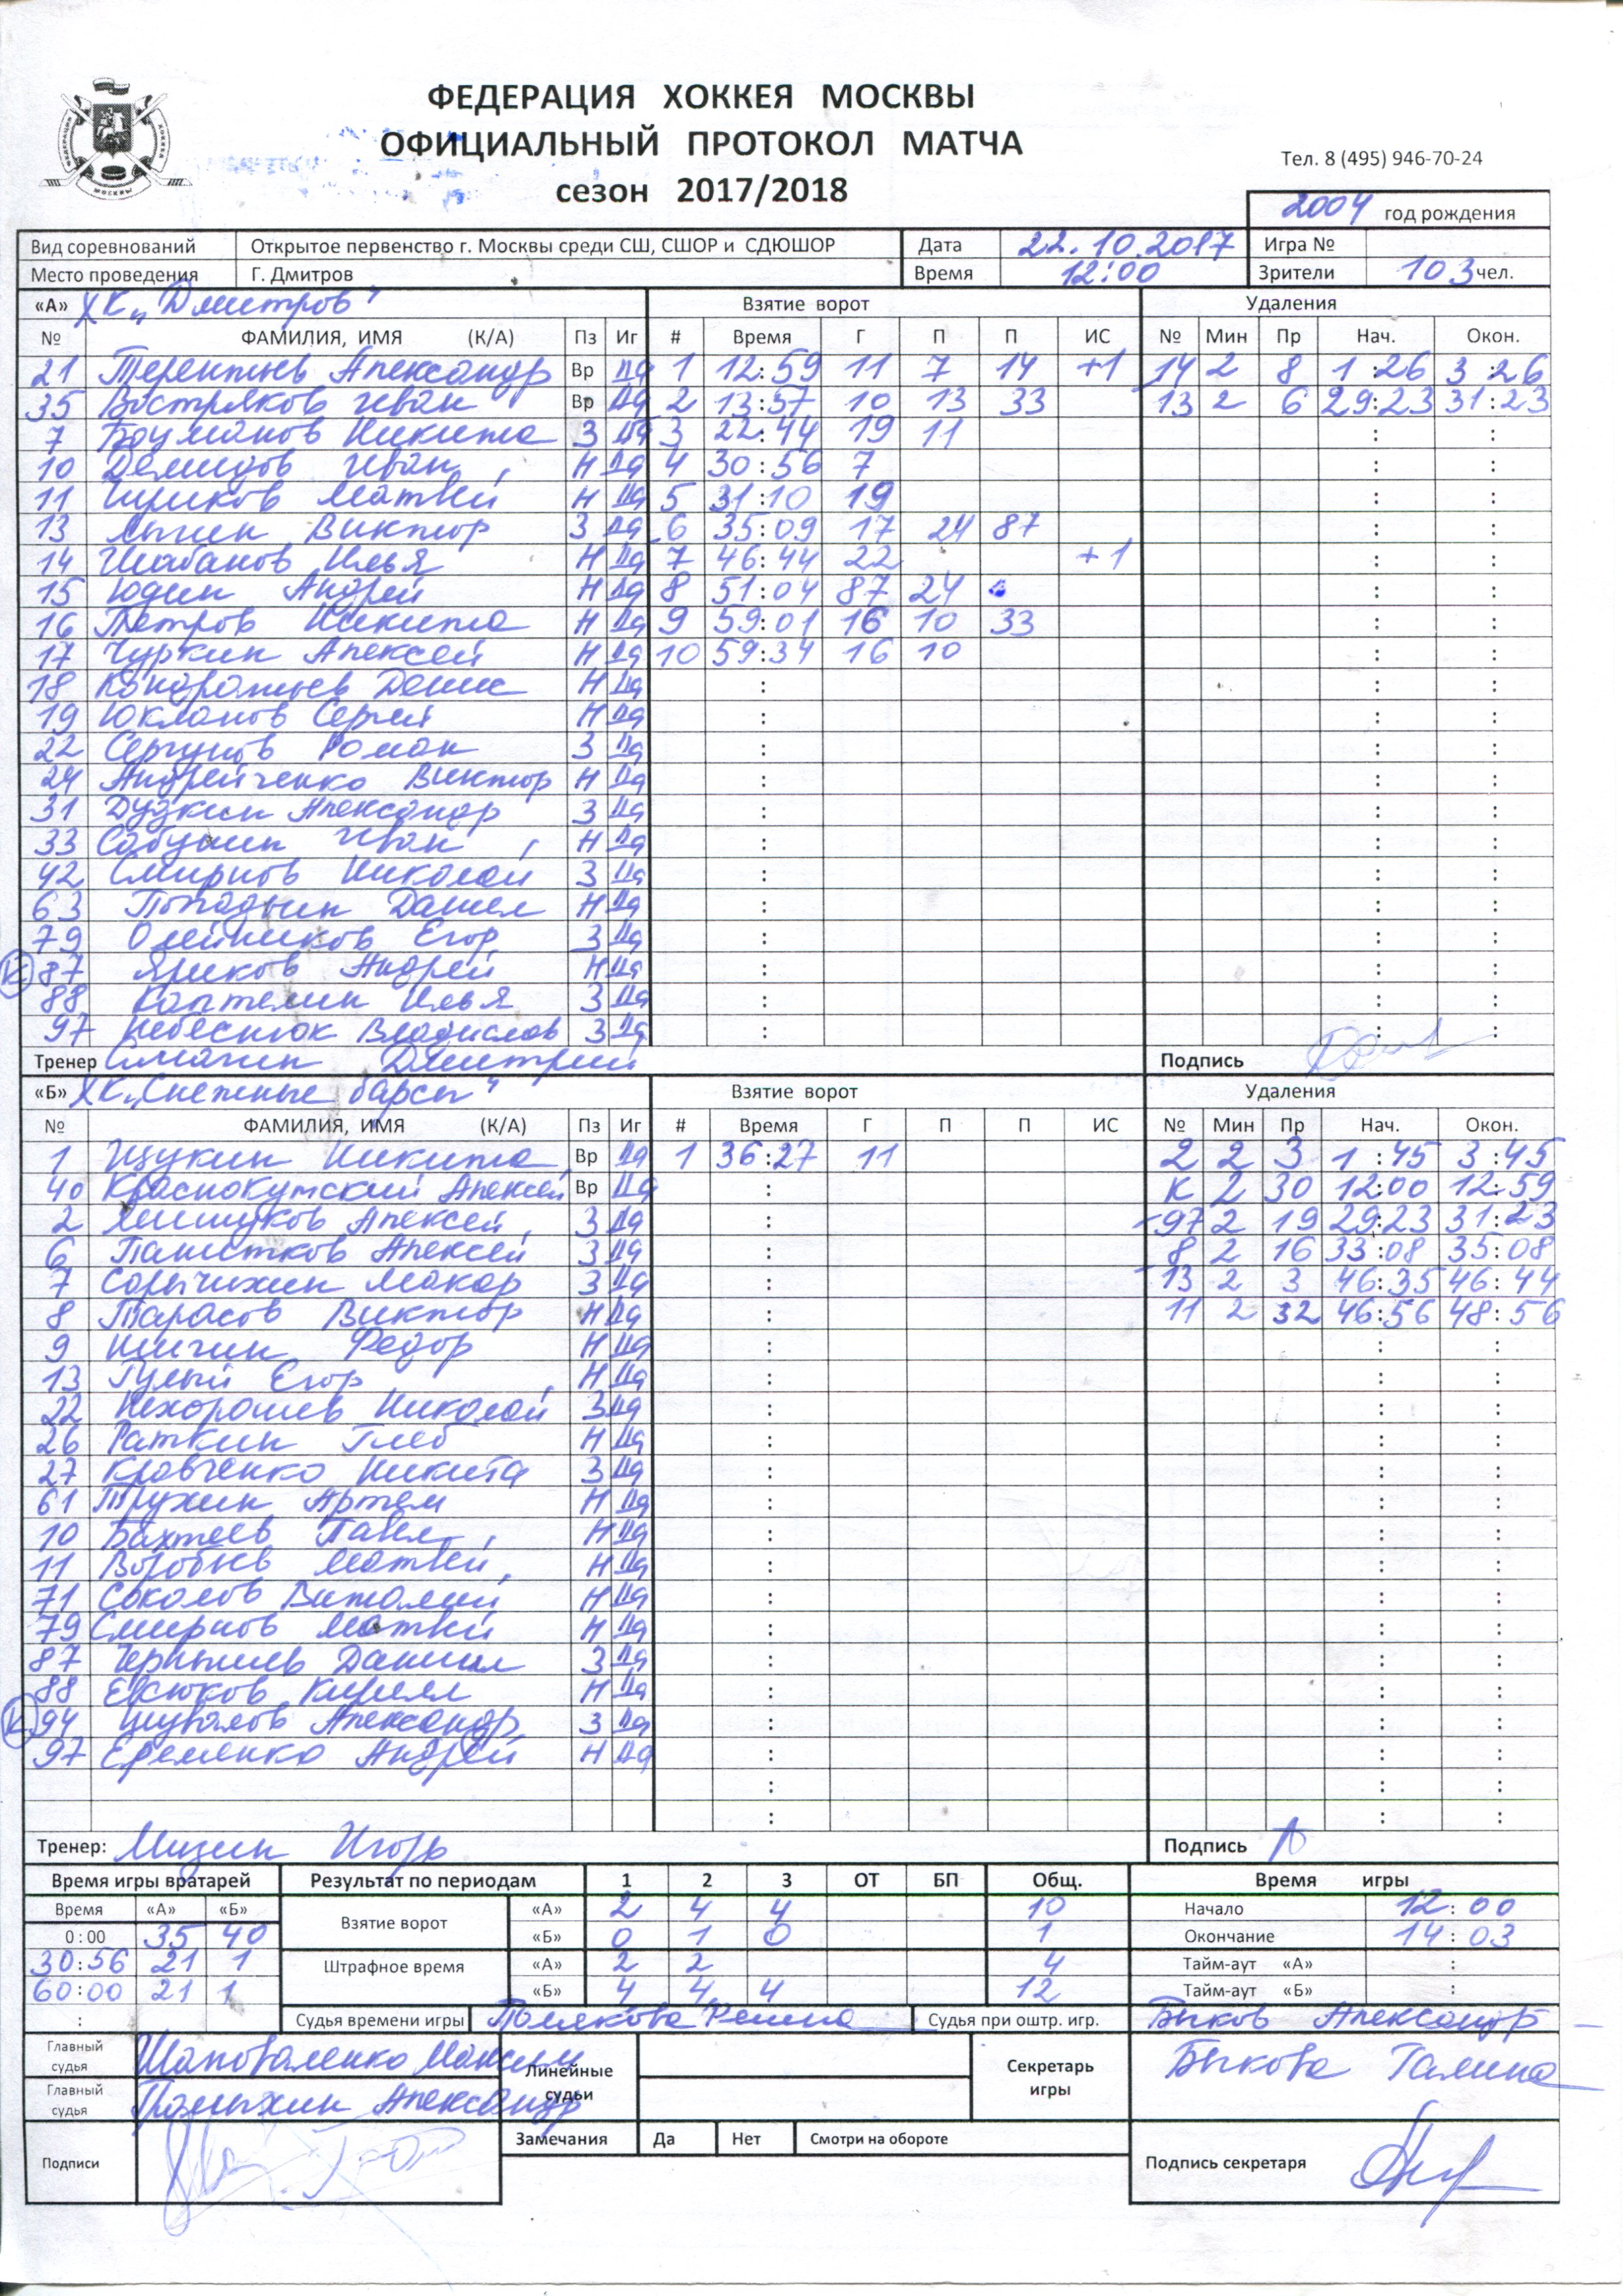 ФЕДЕРАЦИЯ ХОККЕЯ МОСКВЫ
ОФИЦИАЛЬНЫЙ ПРОТОКОЛ МАТЧА
сезон 2017/2018
Тел. 8 (495) 946-70-24
2004 год рождения
Вид соревнований Открытое первенство г. Москвы среди СШ, СШОР и СДЮШОР Дата 22.10.2017 Игра №
Место проведения Г. Дмитров Время 12:00 Зрители 103 чел.
«А» ХК „Дмитров" Взятие ворот Удаления
№ ФАМИЛИЯ, ИМЯ (К/А) Пз Иг # Время Г П П ИС № Мин Пр Нач. Окон.
21 Терентьев Александр Вр Да 1 12:59 11 7 14 +1 14 2 8 1:26 3:26
35 Востряков Иван Вр Да 2 13:57 10 13 33 13 2 6 29:23 31:23
7 Боуманов Никита З Да 3 22:44 19 11 : :
10 Демидов Иван Н Да 4 30:56 7 : :
11 Чуриков Матвей Н Да 5 31:10 19 : :
13 Виктор З Да 6 35:09 17 24 87 : :
14 Шабанов Илья Н Да 7 46:44 22 +1 : :
15 Юдин Андрей Н Да 8 51:04 87 24 : :
16 Петров Никита Н Да 9 59:01 16 10 33 : :
17 Чуркин Алексей Н Да 10 59:34 16 10 : :
18 Кондратьев Денис Н Да : : :
19 Юкланов Сергей Н Да : : :
22 Сергунов Роман З Да : : :
24 Андрейченко Виктор Н Да : : :
31 Дудкин Александр З Да : : :
33 Сабушин Иван Н Да : : :
42 Смирнов Николай З Да : : :
63 Попадьин Данил Н Да : : :
79 Олейников Егор З Да : : :
К 87 Яриков Андрей Н Да : : :
88 Каптелин Илья З Да : : :
97 Небеснюк Владислав З Да : : :
Тренер Симагин Дмитрий Подпись
«Б» ХК „Снежные барсы" Взятие ворот Удаления
№ ФАМИЛИЯ, ИМЯ (К/А) Пз Иг # Время Г П П ИС № Мин Пр Нач. Окон.
1 Щукин Никита Вр Да 1 36:27 11 2 2 3 1:45 3:45
40 Краснокутский Алексей Вр Да : К 2 30 12:00 12:59
2 Алексей З Да : 97 2 19 29:23 31:23
6 Пашатков Алексей З Да : 8 2 16 33:08 35:08
7 Сорычихин Макар З Да : 13 2 3 46:35 46:44
8 Тарасов Виктор Н Да : 11 2 32 46:56 48:56
9 Шигин Федор Н Да : : :
13 Гулый Егор Н Да : : :
22 Нехорошев Николай З Да : : :
26 Раткин Глеб Н Да : : :
27 Кравченко Никита З Да : : :
61 Трухин Артем Н Да : : :
10 Бахтеев Павел Н Да : : :
11 Воробьев Матвей Н Да : : :
71 Соколов Виталий Н Да : : :
79 Смирнов Матвей Н Да : : :
87 Чернышев Даниил З Да : : :
88 Евсюков Кирилл Н Да : : :
К 94 Шувалов Александр З Да : : :
97 Еременко Андрей Н Да : : :
: : :
: : :
Тренер: Мизин Игорь Подпись
Время игры вратарей Результат по периодам 1 2 3 ОТ БП Общ. Время игры
Время «А» «Б» Взятие ворот «А» 2 4 4 10 Начало 12:00
0:00 35 40 «Б» 0 1 0 1 Окончание 14:03
30:56 21 1 Штрафное время «А» 2 2 4 Тайм-аут «А» :
60:00 21 1 «Б» 4 4 4 12 Тайм-аут «Б» :
: Судья времени игры Полякова Судья при оштр. игр. Быков Александр
Главный судья Шаповаленко Максим Линейные судьи Секретарь игры Быкова Галина
Главный судья Александр
Замечания Да Нет Смотри на обороте
Подписи Подпись секретаря